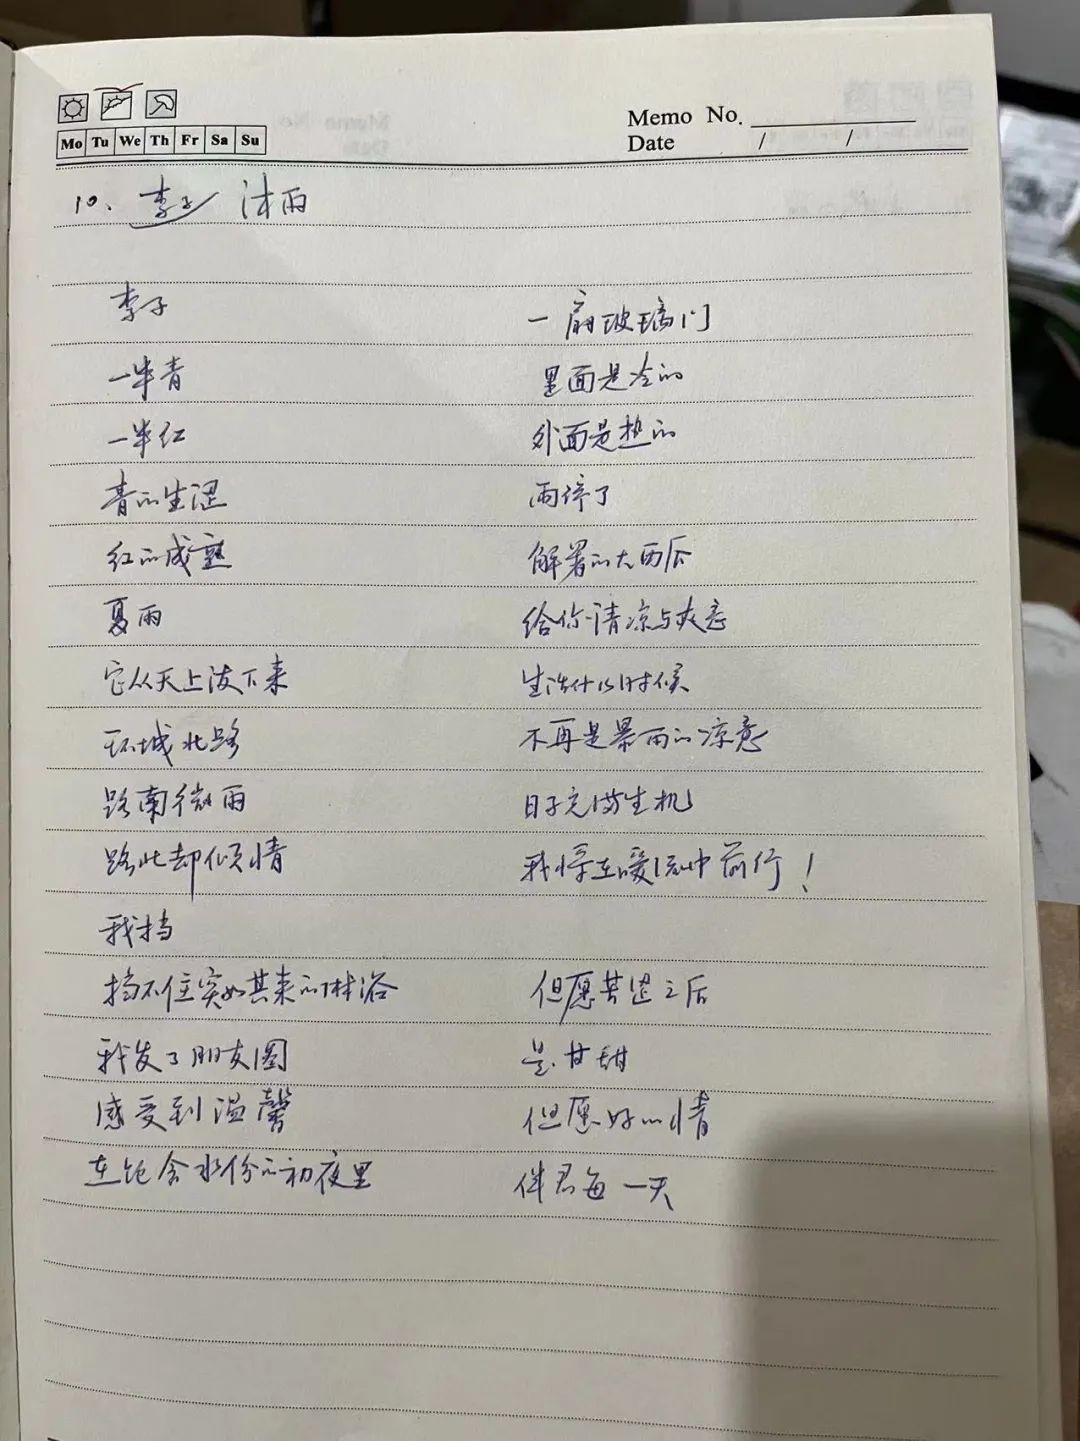 Memo No.
Date / /
Mo Tu We Th Fr Sa Su
10、李子 沐雨
李子
一半青
一半红
青的生涩
红的成熟
夏雨
它从天上泼下来
环城北路
路南微雨
路北却倾情
我挡
挡不住突如其来的淋浴
我发了朋友圈
感受到温馨
在饱含水份的初夜里
一扇玻璃门
里面是冷的
外面是热的
雨停了
解暑的大西瓜
给你清凉与爽意
生活什么时候
不再是暴雨的凉意
日子充满生机
我将在暖流中前行！
但愿苦涩之后
是甘甜
但愿好心情
伴君每一天